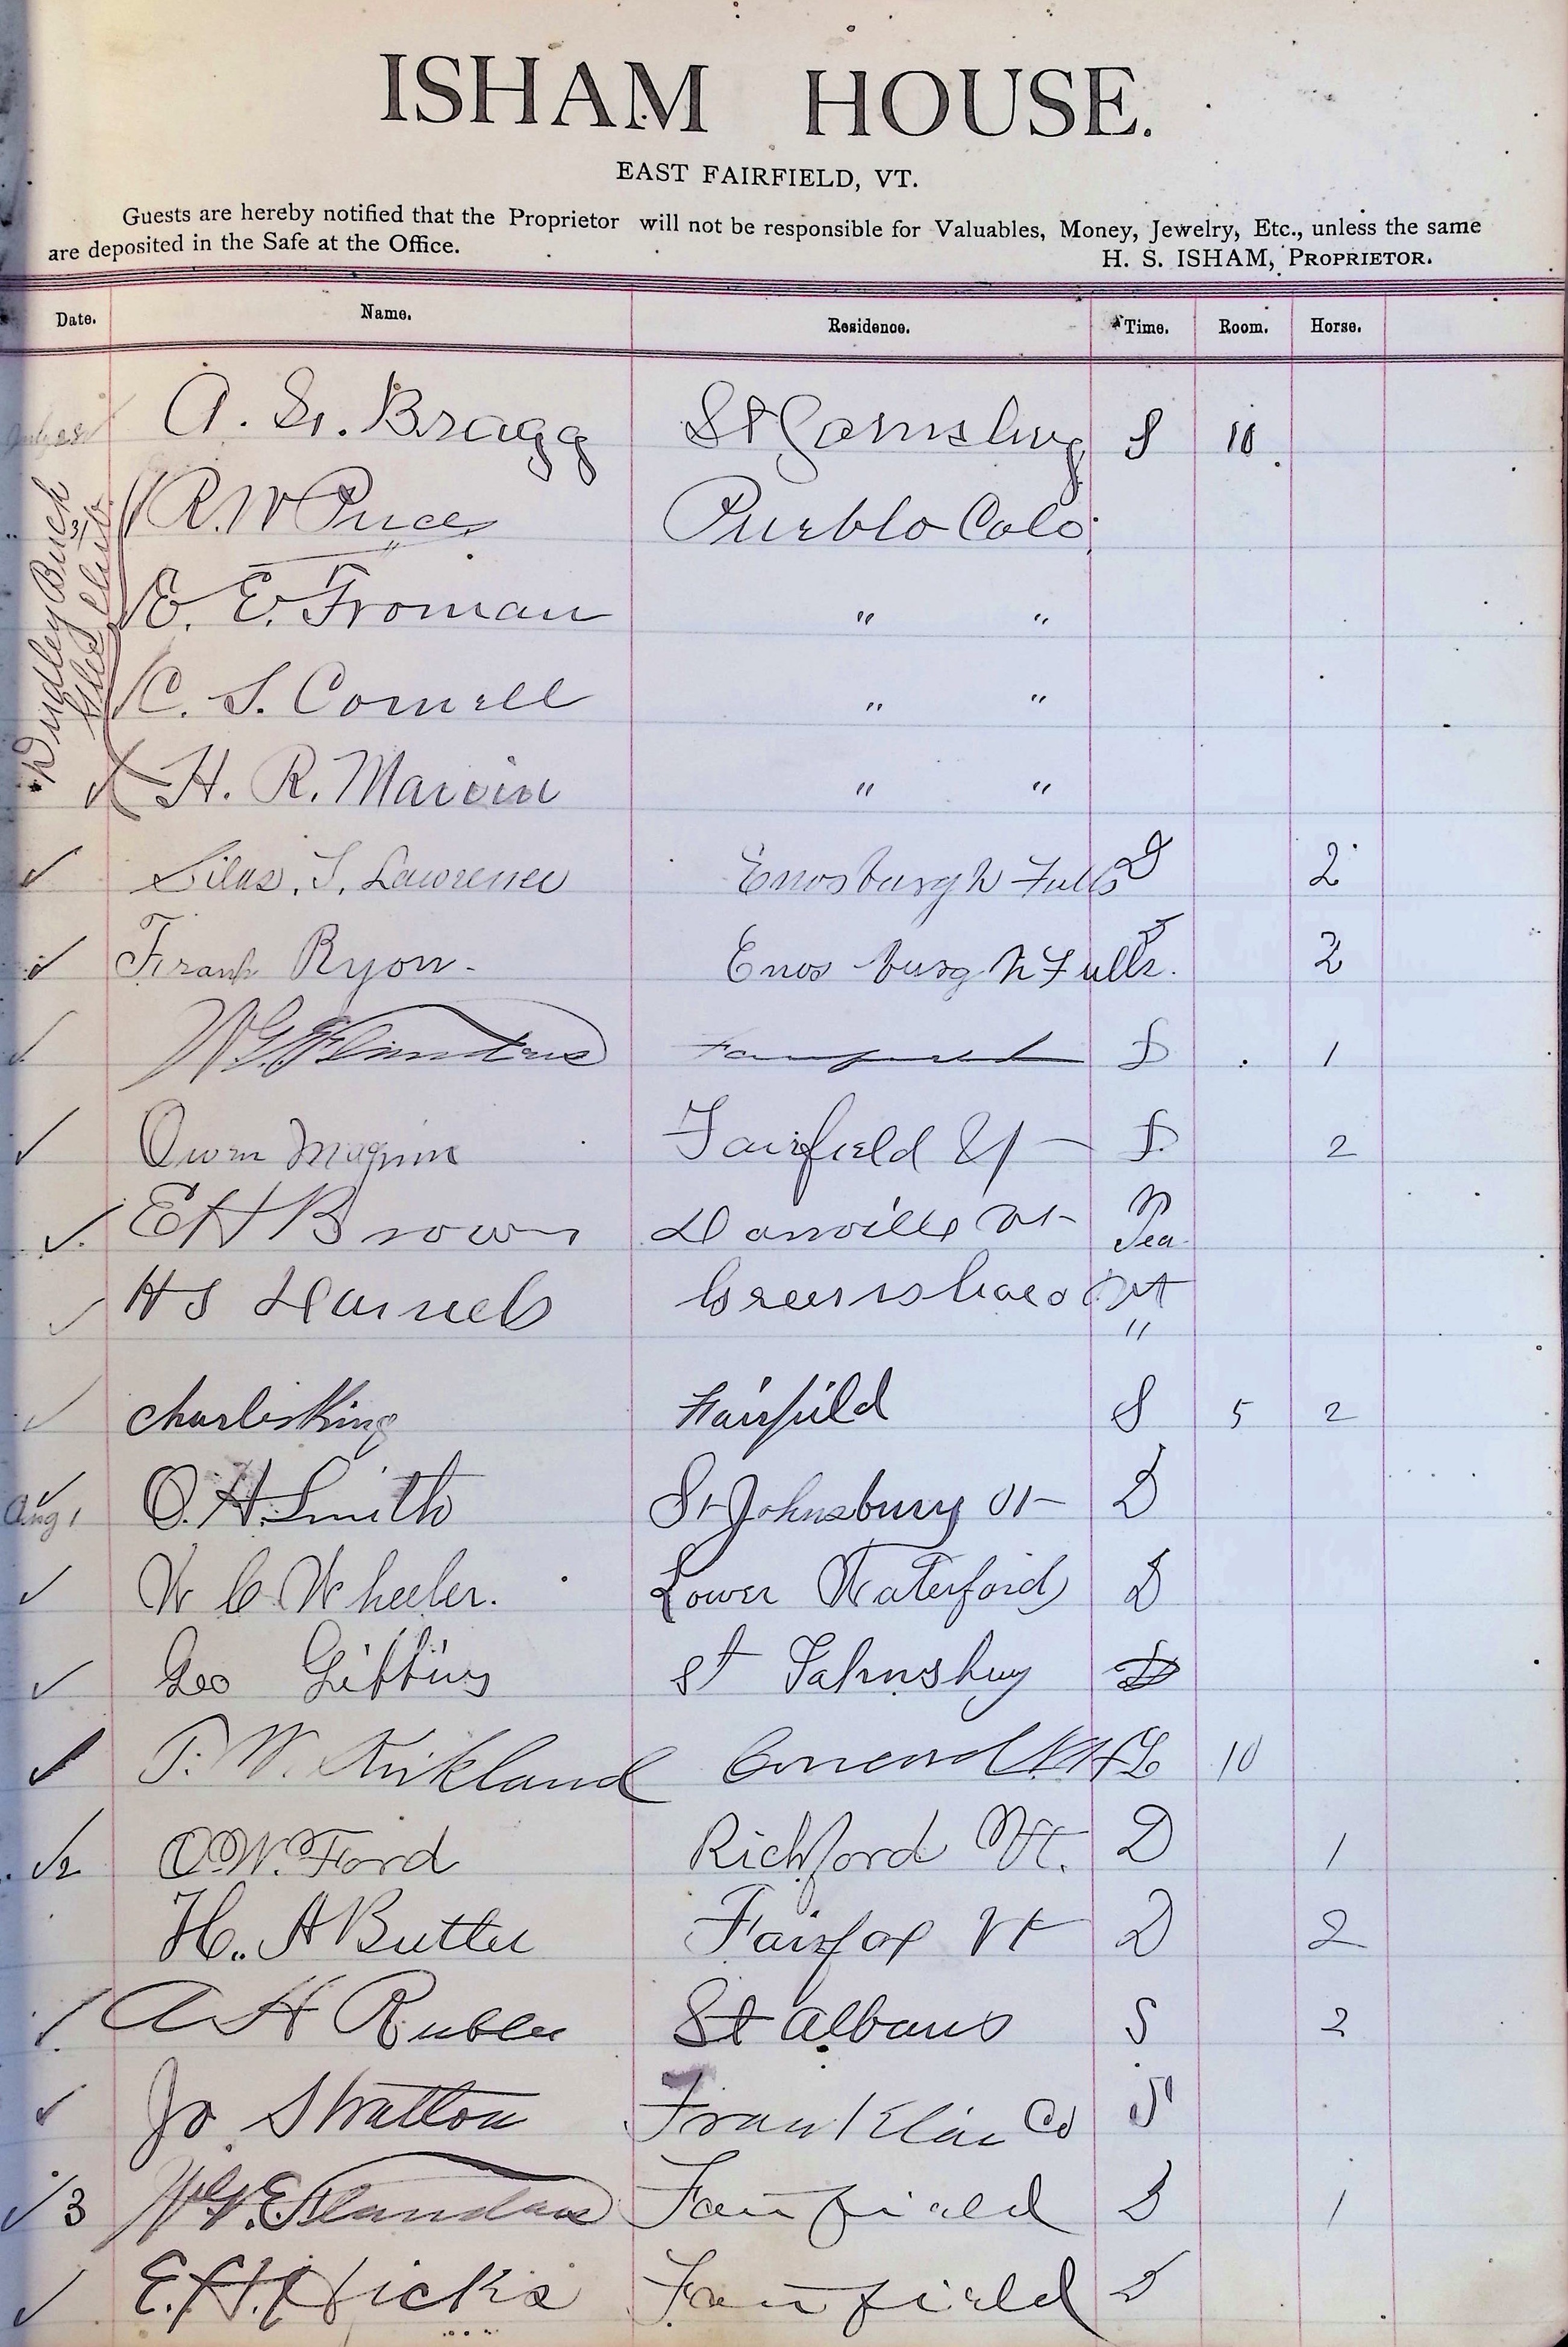 ISHAM HOUSE.
EAST FAIRFIELD, VT.
Guests are hereby notified that the Proprietor will not be responsible for Valuables, Money, Jewelry, Etc., unless the same
are deposited in the Safe at the Office. H. S. ISHAM, PROPRIETOR.
Date. Name. Residence. Time. Room. Horse.
A. G. Bragg St Johnsbury S 10
Dudley Buck
Glee Club
R. W Price Pueblo Colo
E. E. Froman " "
C. S. Cornell " "
H. R. Marvin " "
✓ Silas. S. Lawrence Enosburgh Falls D 2
✓ Frank Ryon - Enosburgh Falls. 2
✓ W G E Flanders Fairfield D 1
✓ Owen Maginn Fairfield Vt D 2
✓ E H Brown Danville Vt
Tea
✓ H S Daniels Greensboro Vt
"
✓ Charles King Fairfield S 5 2
✓ Aug 1 O. H. Smith St Johnsbury Vt D
✓ W C Wheeler. Lower Waterford D
✓ Geo Gibbins St Johnsbury D
✓ T. W. Kirkland Concord N.H. L 10
✓ 2 O. W. Ford Richford Vt. D 1
H. A Butler Fairfax Vt D 2
✓ A H Rublee St Albans S 2
✓ Jo Stratton Franklin Co S
✓ 3 W. G. E. Flanders Fairfield D 1
✓ E. H. Hicks Fairfield D